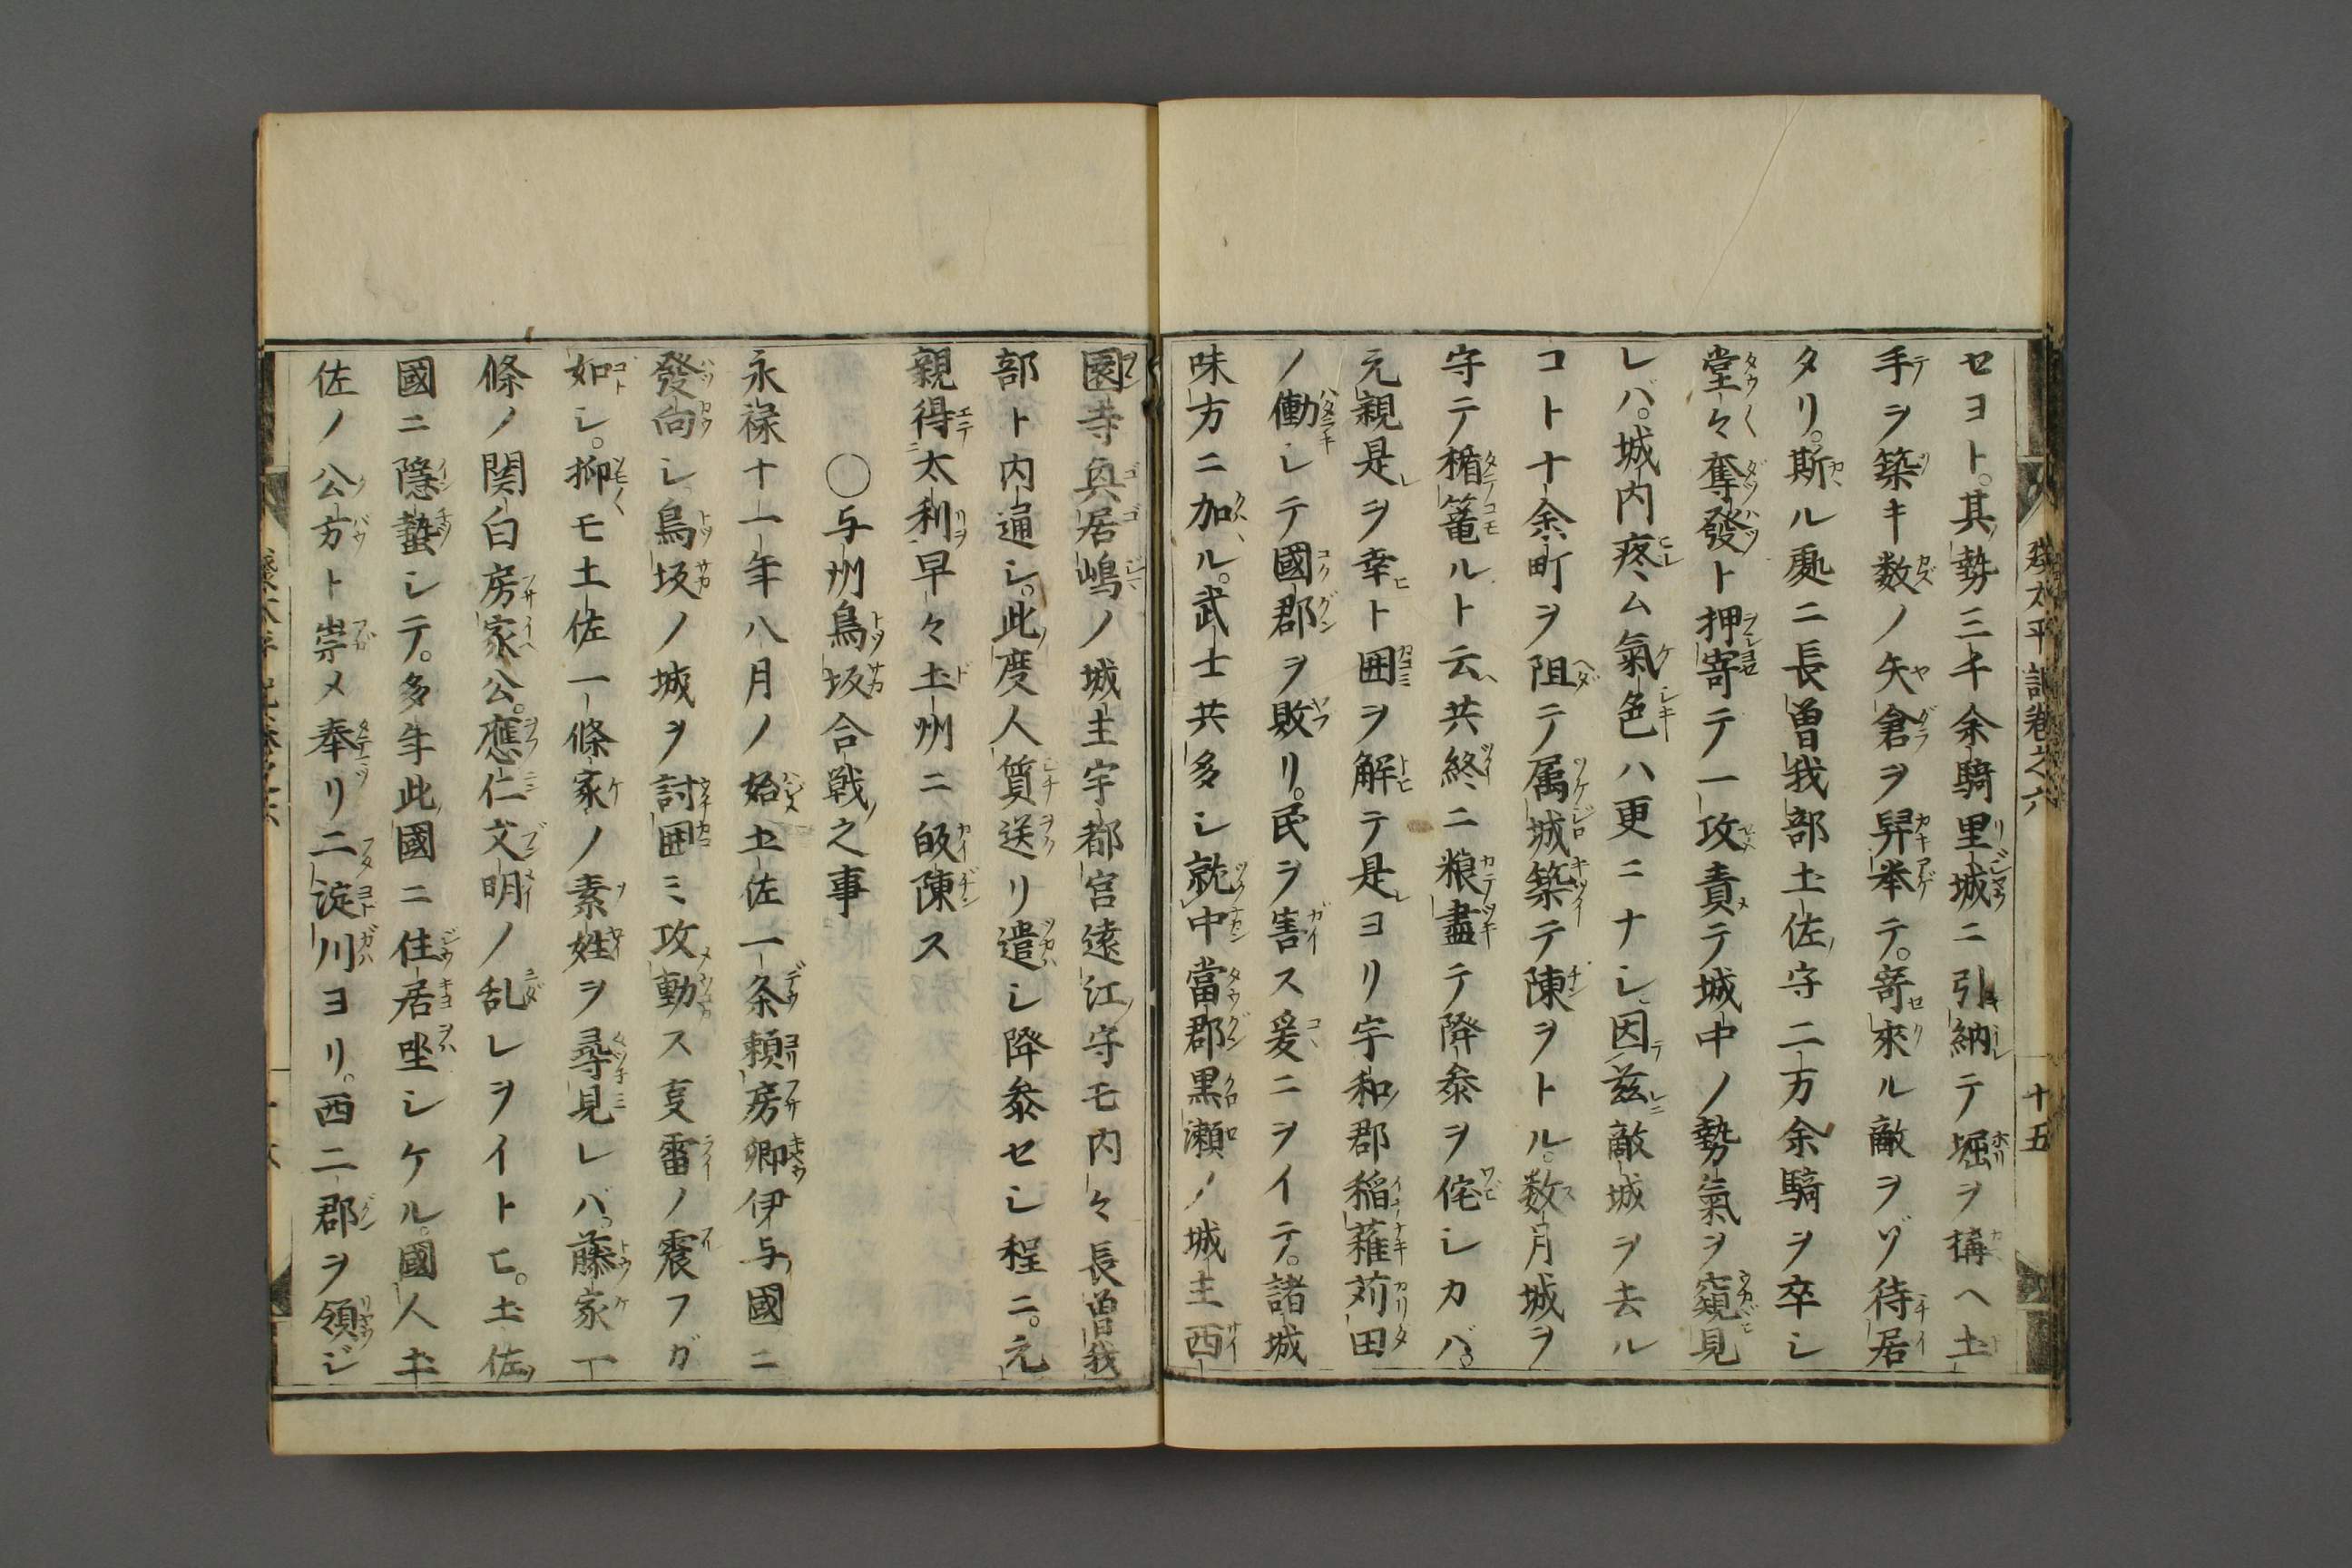 セヨト。其勢三千余騎里城ニ引納テ堀ヲ構ヘ土
手ヲ築キ数ノ矢倉ヲ舁挙テ。寄來ル敵ヲゾ待居
タリ。斯ル處ニ長曽我部土佐守二万余騎ヲ卒シ
堂々奪發ト押寄テ一攻責テ城中ノ勢氣ヲ窺見
レバ。城内疼ム氣色ハ更ニナシ因茲敵城ヲ去ル
コト十余町ヲ阻テ属城築テ陳ヲトル。数月城ヲ
守テ楯篭ルト云共終ニ粮盡テ降参ヲ侘シカバ。
元親是ヲ幸ト囲ヲ解テ是ヨリ宇和郡稲薙苅田
ノ働シテ國郡ヲ敗リ。民ヲ害ス爰ニヲイテ。諸城
味方ニ加ル。武士共多シ就中當郡黒瀬ノ城主西
園寺與居嶋ノ城主宇都宮遠江守モ内々長曽我
部ト内通シ。此度人質送リ遣シ降参セシ程ニ。元
親得太利早々土州ニ皈陳ス
○与州鳥坂合戦之事
永禄十一年八月ノ始土佐一条頼房卿伊与國ニ
發向シ鳥坂ノ城ヲ討囲ミ攻動ス㕝雷ノ震フガ
如シ。抑モ土佐一條家ノ素姓ヲ尋見レバ。藤家一
條ノ関白房家公。應仁文明ノ乱レヲイトヒ。土佐
國ニ隠蟄シテ。多年此國ニ住居坐シケル。國人土
佐ノ公方ト崇メ奉リ二淀川ヨリ。西二郡ヲ領ジ
太平記巻之六
十五